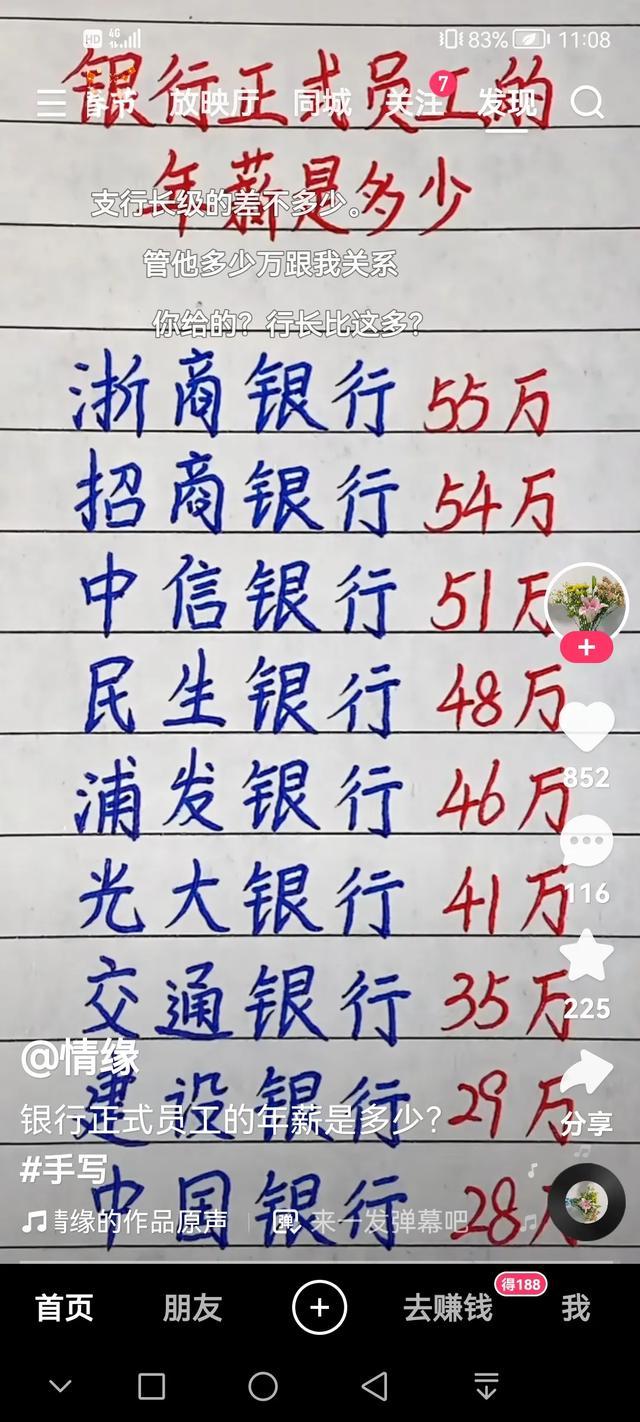 HD 4G 83% 11:08
银行正式员工的
春节 放映厅 同城 关注 7 发现
年薪是多少
支行长级的差不多少。
管他多少万跟我关系
你给的？行长比这多？
浙商银行 55万
招商银行 54万
中信银行 51万
民生银行 48万
852
浦发银行 46万
116
光大银行 41万
225
交通银行 35万
@情缘
建设银行 29万
分享
银行正式员工的年薪是多少？
#手写
中国银行 28万
情缘的作品原声 弹 来一发弹幕吧
首页 朋友 去赚钱 得188 我